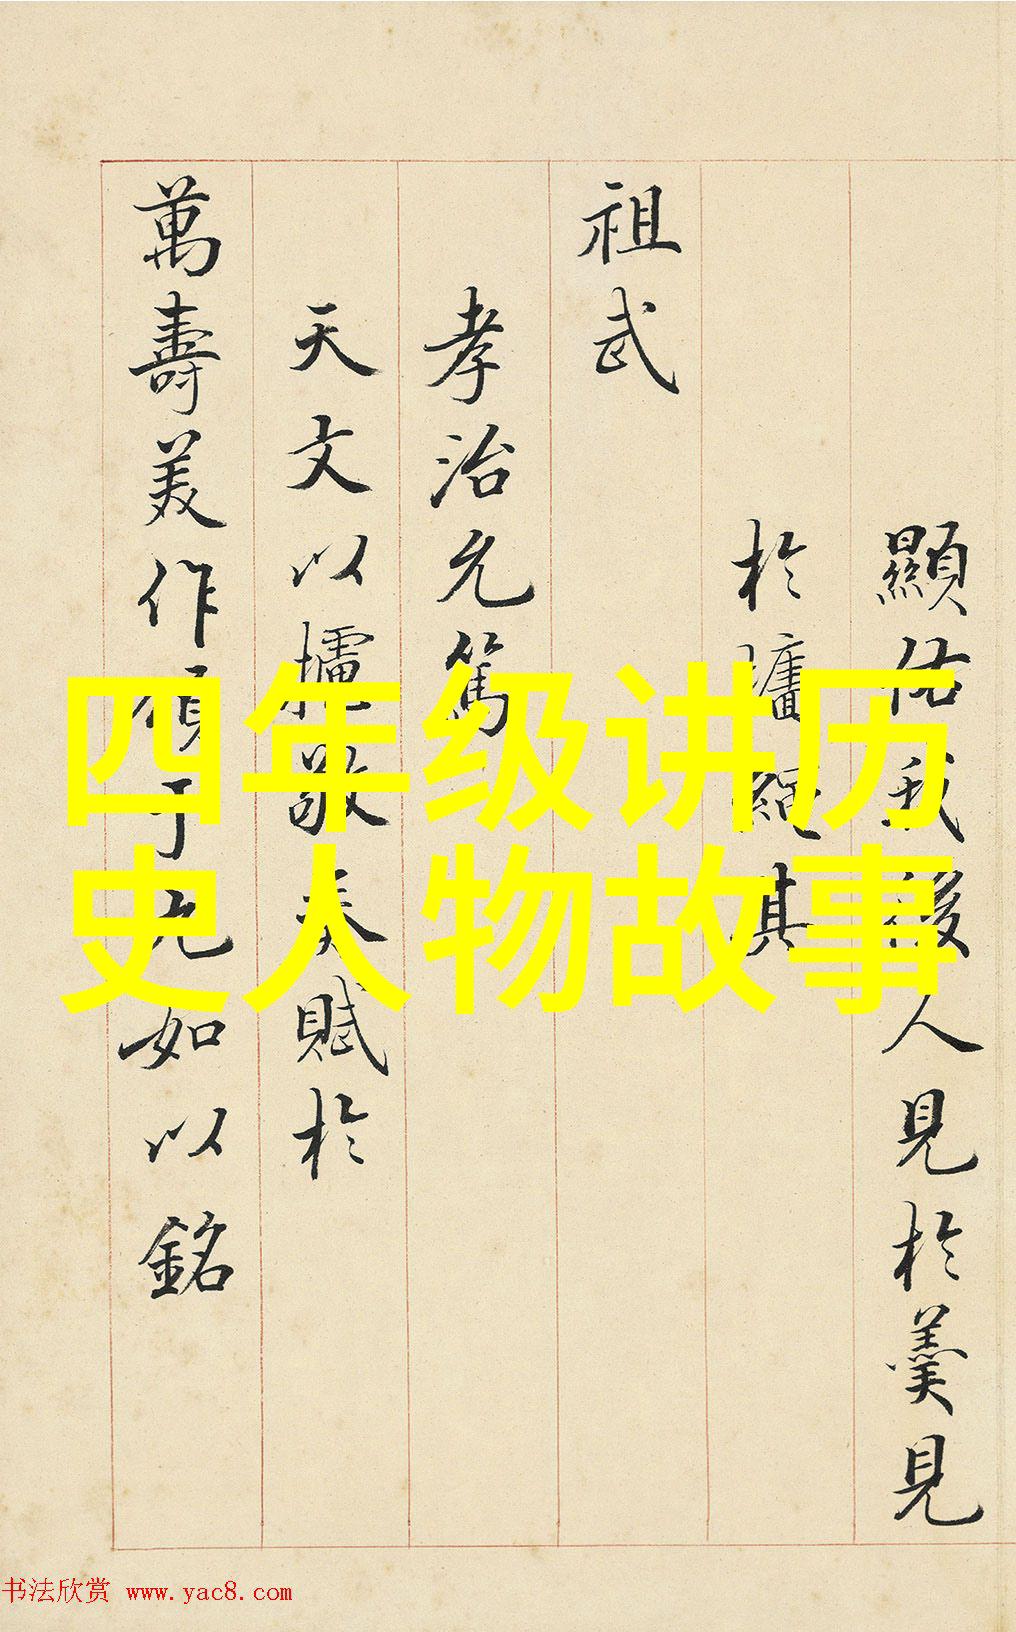 顯佑我後人見於羹見
於墻繩其
祖武
孝治允篤
天文以攄敬奏賦於
萬壽美作頌丁尤如以銘
四年级讲历
史人物故事
书法欣赏 www.yac8.com